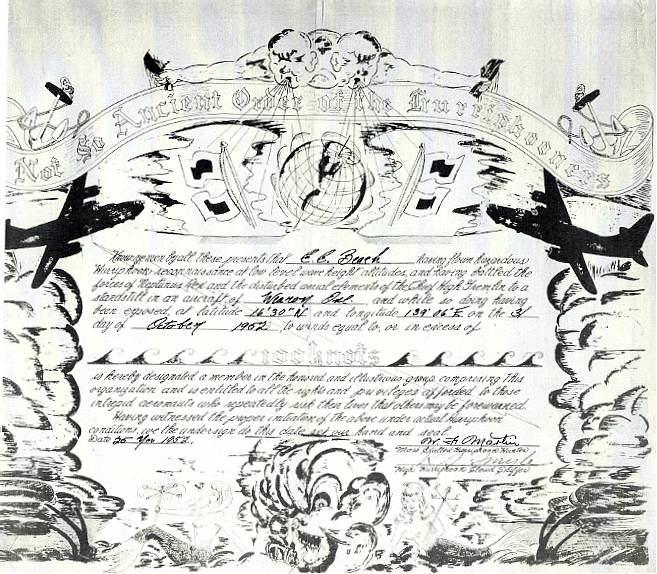 Not So Ancient Order of the Hurriphooners
Know ye men by all these presents that E. C. Beach having flown hazardous
Hurriphoon reconnaissance at low level wave height altitudes, and having battled the
forces of Neptunus Rex and the disturbed aerial elements of the Chief High Gremlin to a
standstill in an aircraft of and while so doing having
been exposed, at latitude 16°30"N and longitude 139°06'E on the 31
day of October 1952 to winds equal to, or in excess of
100 knots
is hereby designated a member in the honored and illustrious group comprising this
organization and is entitled to all the rights and privileges afforded to those
intrepid aeronauts who repeatedly risk their lives that others may be forewarned.
Having witnessed the proper initiation of the above under actual Hurriphoon
conditions, we the undersign do this date set our hand and seal.
Date 25 Nov 1952. W. F. Martin
Most Exalted Hurriphoon Hunter
High Hurriphoon Cloud Chaser